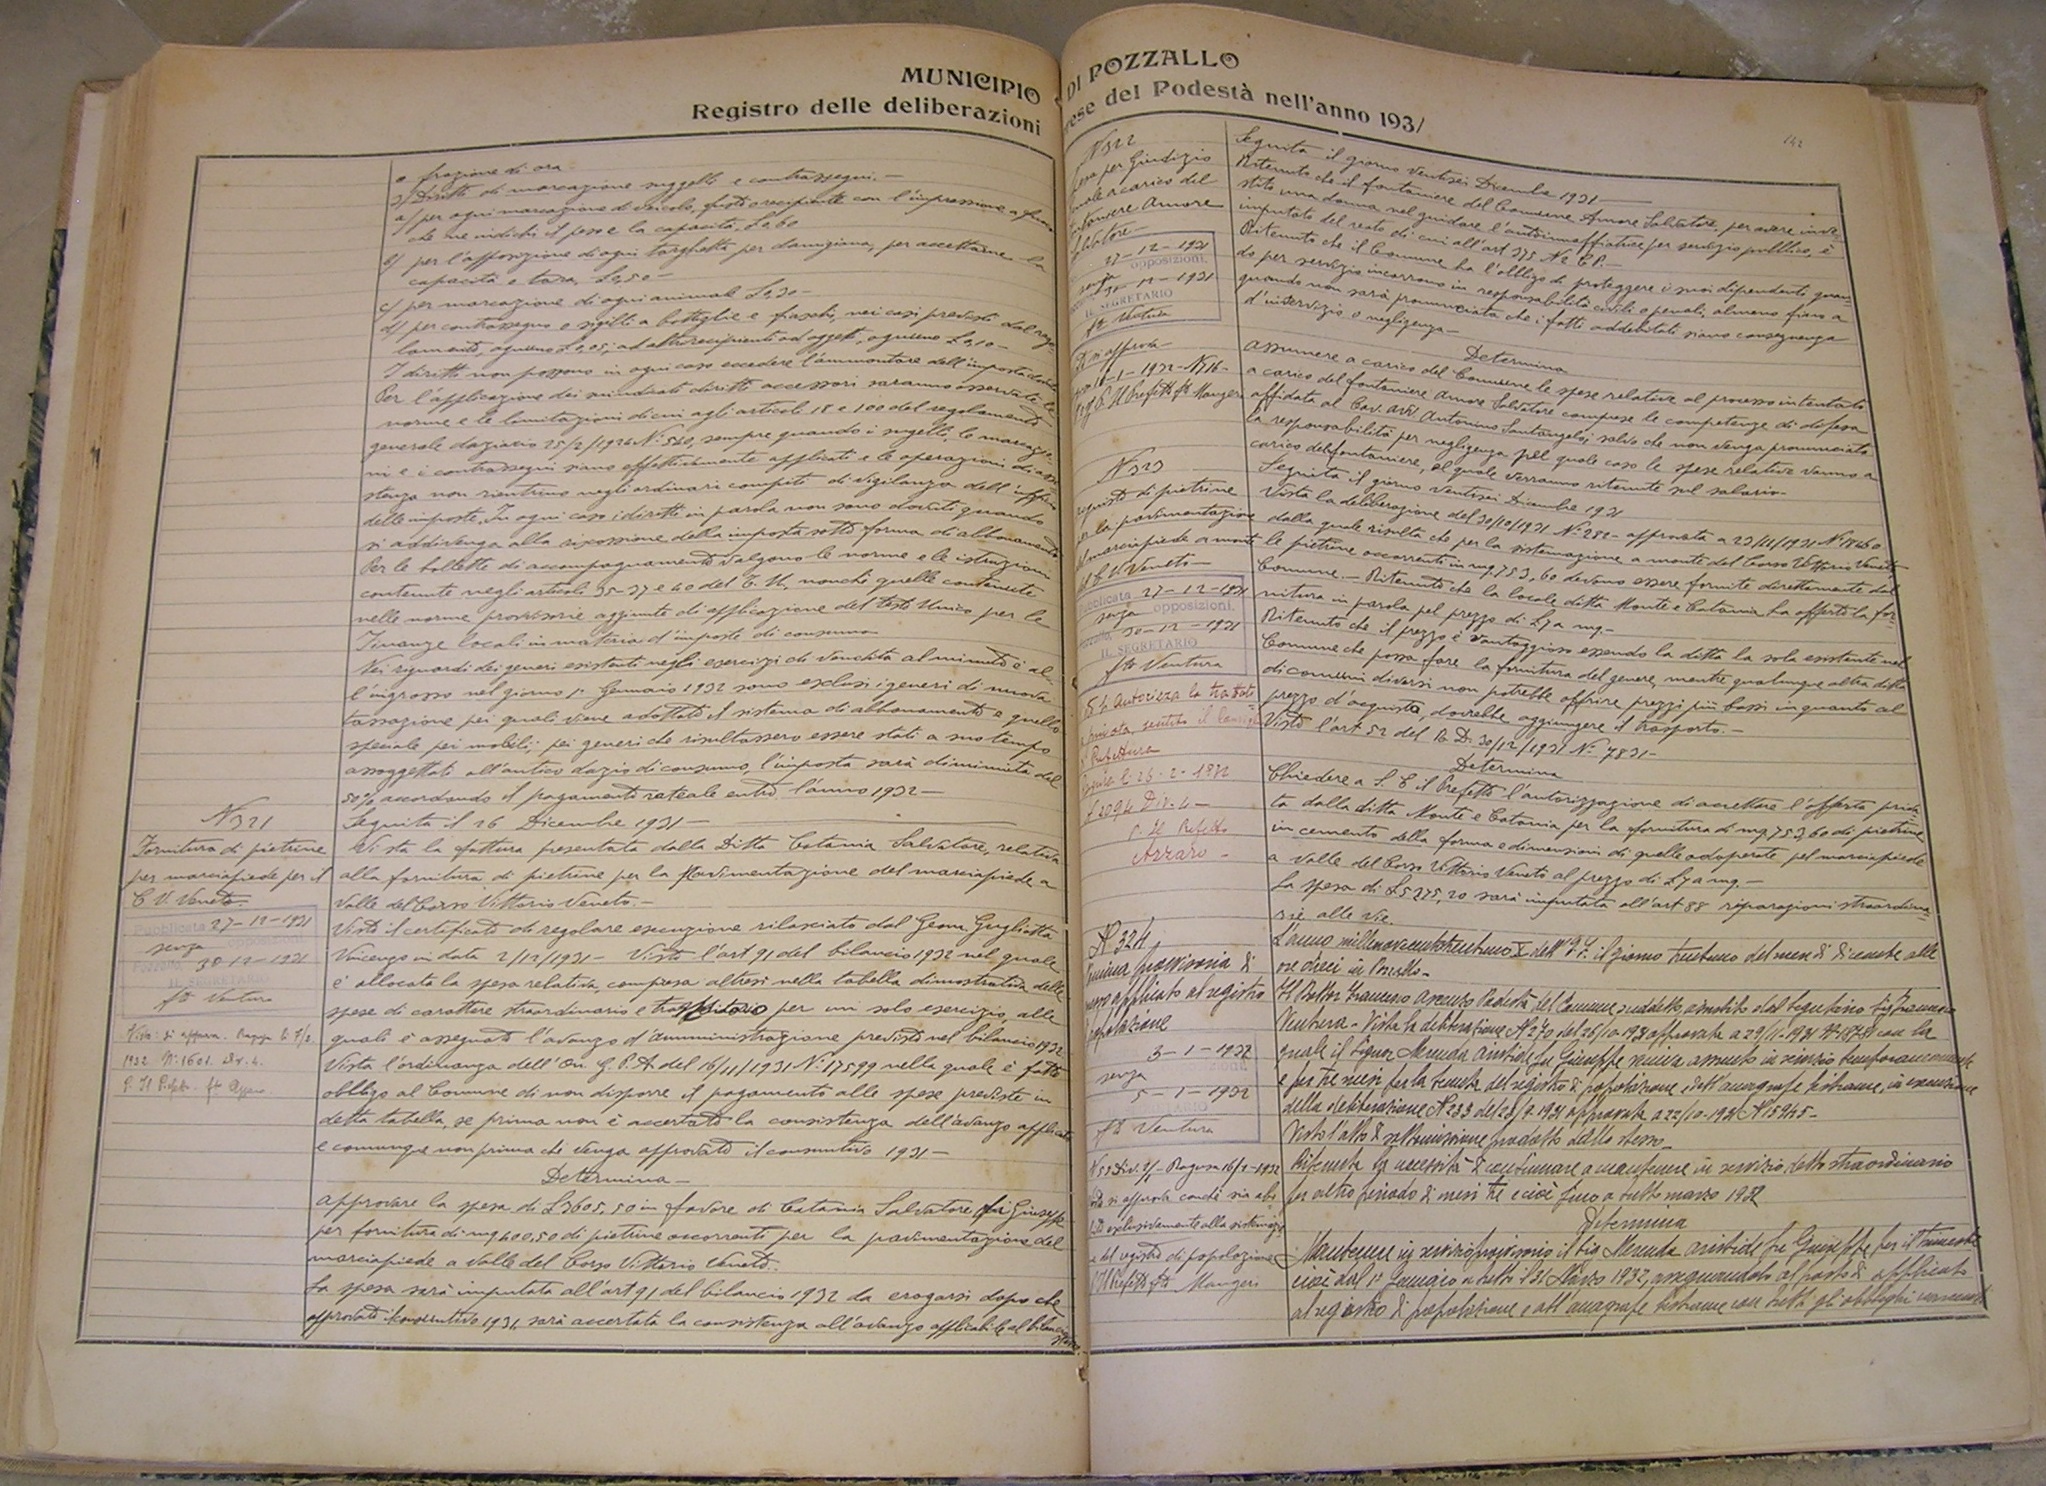 MUNICIPIO DI POZZALLO
Registro delle deliberazioni prese del Podestà nell'anno 1931
o frazione di ora
3) Diritti di marcazione suggelli e contrassegni. —
a) per ogni marcazione di veicolo, fusto o recipiente con l'impressione a fuoco
che ne indichi il peso e la capacità, L 0,60
b) per l'apposizione di ogni targhetta per damigiana, per accertarne la
capacità e tara, L 0,50 —
c) per marcazione di ogni animale L 0,30 —
d) per contrassegno e sigilli a bottiglie e fiaschi, nei casi previsti dal rego
lamento, ognuno L 0,05; ad altri recipienti od oggetti, ognuno L 0,10 —
I diritti non possono in ogni caso eccedere l'ammontare dell'imposta dovuta
Per l'applicazione dei suindicati diritti accessori saranno osservate le
norme e le limitazioni di cui agli articoli 18 e 100 del regolamento
generale daziario 25/2/1924 N. 540, sempre quando i sugelli, le marcazio
ni e i contrassegni siano effettivamente applicati e le operazioni di assi
stenza non rientrino negli ordinari compiti di vigilanza dell'ufficio
delle imposte. In ogni caso i diritti in parola non sono dovuti quando
si addivenga alla riscossione della imposta sotto forma di abbonamento
Per le bollette di accompagnamento valgono le norme e le istruzioni
contenute negli articoli 35-37 e 40 del T. U. nonchè quelle contenute
nelle norme provvisorie aggiunte di applicazione del Testo Unico per le
Finanze locali in materia d'imposte di consumo
Nei riguardi dei generi esistenti negli esercizi di vendita al minuto e al
l'ingrosso nel giorno 1° Gennaio 1932 sono esclusi i generi di nuova
tassazione pei quali viene adottato il sistema di abbonamento e quello
speciale pei mobili; pei generi che risultassero essere stati a suo tempo
assoggettati all'antico dazio di consumo, l'imposta sarà diminuita del
50% accordando il pagamento rateale entro l'anno 1932 —
N 321
Fornitura di pietrine
per marciapiede per il
C. V. Veneto.
Pubblicata 27-12-1931
senza opposizioni
Pozzallo 30-12-1931
IL SEGRETARIO
fto Ventura
Visto: si approva. Ragusa li
1932 N. 1601. Div. 4.
P. Il Prefetto fto Azzaro
Seguita il 26 Dicembre 1931 —
Vista la fattura presentata dalla Ditta Catania Salvatore, relativa
alla fornitura di pietrine per la pavimentazione del marciapiede a
valle del Corso Vittorio Veneto. —
Visto il certificato di regolare esecuzione rilasciato dal Geom. Gugliotta
Vincenzo in data 2/12/1931 — Visto l'art 91 del bilancio 1932 nel quale
è allocata la spesa relativa, compresa altresì nella tabella dimostrativa delle
spese di carattere straordinario e transitorio per un solo esercizio, alle
quali è assegnato l'avanzo d'amministrazione previsto nel bilancio 1932
Vista l'ordinanza dell'On. G. P. A. del 16/11/1931 N. 17599 nella quale è fatto
obbligo al Comune di non disporre il pagamento alle spese previste in
detta tabella, se prima non è accertata la consistenza dell'avanzo applicato
e comunque non prima che venga approvato il consuntivo 1931 —
Determina —
approvare la spesa di L 3605,50 in favore di Catania Salvatore fu Giuseppe
per fornitura di mq 400,50 di pietrine occorrenti per la pavimentazione del
marciapiede a valle del Corso Vittorio Veneto.
La spesa sarà imputata all'art 91 del bilancio 1932 da erogarsi dopo che
approvato il consuntivo 1931, sarà accertata la consistenza all'avanzo applicabile al bilancio
stesso.
142
N 322
spesa per Giudizio
penale a carico del
fontaniere Amore
Salvatore —
27-12-1931
opposizioni.
30-12-1931
IL SEGRETARIO
fto Ventura
Visto si approva —
16-1-1932 - N 716 -
P. Il Prefetto fto Mangeri
Seguita il giorno Ventisei Dicembre 1931 —
Ritenuto che il fontaniere del Comune Amore Salvatore, per avere inve-
stito una donna nel guidare l'autoinnaffiatrice per servizio pubblico, è
imputato del reato di cui all'art 375 N 2 C.P. —
Ritenuto che il Comune ha l'obbligo di proteggere i suoi dipendenti quan-
do per servizio incorrono in responsabilità civili o penali, almeno fino a
quando non sarà pronunciata che i fatti addebitati siano conseguenza
d'inservizio o negligenza —
Determina
assumere a carico del Comune le spese relative al processo intentato
a carico del fontaniere Amore Salvatore comprese le competenze di difesa
affidata al Cav. avv. Antonino Santangelo, salvo che non venga pronunciata
la responsabilità per negligenza pel quale caso le spese relative vanno a
carico del fontaniere, al quale verranno ritenute sul salario —
N 323
Acquisto di pietrine
per la pavimentazione
del marciapiede a monte
del C. V. Veneto —
Pubblicata 27-12-1931
senza opposizioni.
Pozzallo 30-12-1931
IL SEGRETARIO
fto Ventura
Si autorizza la trattati
privata, sentito il Consiglio
di Prefettura
Ragusa li 25-2-1932
N 2094 Div. 4 —
P. Il Prefetto
Azzaro —
Seguita il giorno Ventisei Dicembre 1931
Vista la deliberazione del 30/10/1931 N. 282 - approvata a 23/11/1931 N 18460
dalla quale risulta che per la sistemazione a monte del Corso Vittorio Veneto
le pietrine occorrenti in mq. 753,60 devono essere fornite direttamente dal
Comune. — Ritenuto che la locale ditta Monte e Catania ha offerto la for-
nitura in parola pel prezzo di L 7 a mq. —
Ritenuto che il prezzo è vantaggioso essendo la ditta la sola esistente nel
Comune che possa fare la fornitura del genere, mentre qualunque altra ditta
di comuni diversi non potrebbe offrire prezzi più bassi in quanto al
prezzo d'acquisto, dovrebbe aggiungere il trasporto. —
Visto l'art 52 del R. D. 30/12/1931 N. 7831 —
Determina
Chiedere a S. E. il Prefetto l'autorizzazione di accettare l'offerta priva-
ta dalla ditta Monte e Catania per la fornitura di mq. 753,60 di pietrine
in cemento della forma e dimensioni di quelle adoperate pel marciapiede
a valle del Corso Vittorio Veneto al prezzo di L 7 a mq. —
La spesa di L 5275,20 sarà imputata all'art 88 riparazioni straordina-
rie alle vie.
N 324
Nomina provvisoria di
messo applicato al registro
popolazione
3-1-1932
senza
5-1-1932
fto Ventura
N 53 Div. 2/ - Ragusa 16/1-1932
Visto si approva condi
esclusivamente alla sistemazio
del registro di popolazione
Il Prefetto fto Mangeri
L'anno millenovecentotrentuno X dell'E. F. il giorno trentuno del mese di dicembre alle
ore dieci in Pozzallo —
Il Dottor Podestà del Comune suddetto, assistito dal Segretario Sig. Francesco
Ventura — Vista la deliberazione N 270 del 26/10-1931 approvata a 29/11-1931 con la
quale il Signor Merenda Aristide fu Giuseppe veniva assunto in servizio temporaneamente
e per tre mesi per la tenuta del registro di popolazione, dell'anagrafe bestiame, in esecuzione
della deliberazione N 233 del 28/9-1931 approvata a 22/10-1931 N 15945 —
Visto l'atto di sottomissione prodotto dallo stesso —
Ritenuta la necessità di continuare a mantenere in servizio detto straordinario
per altro periodo di mesi tre e cioè fino a tutto marzo 1932
Determina
Mantenere in servizio provvisorio il Sig. Merenda Aristide fu Giuseppe per il trimestre
cioè dal 1° Gennaio a tutto il 31 Marzo 1932, assegnandolo al posto di applicato
al registro di popolazione e all'anagrafe bestiame con tutti gli obblighi inerenti